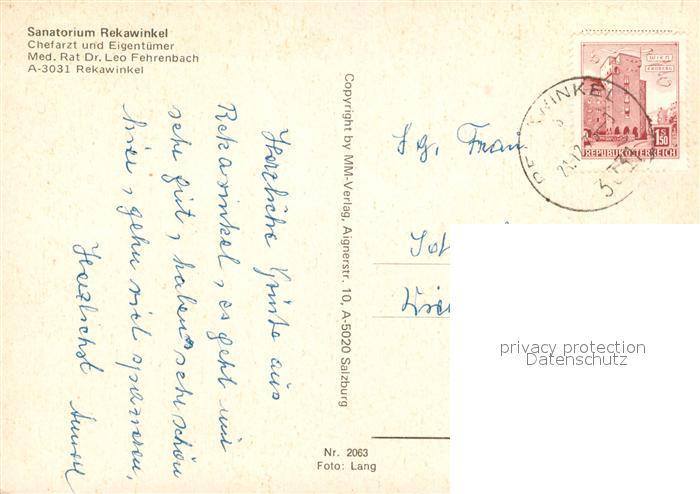 Sanatorium Rekawinkel
Chefarzt und Eigentümer
Med. Rat Dr. Leo Fehrenbach
A-3031 Rekawinkel
Herzliche Grüße aus
Rekawinkel, es geht mir
sehr gut, haben's sehr schön
hier, gehn viel spazieren.
Herzlichst
Copyright by MM-Verlag, Aignerstr. 10, A-5020 Salzburg
Nr. 2063
Foto: Lang
WIEN
ERDBERG
S 1.50
REPUBLIK ÖSTERREICH
REKAWINKEL
Sg. Frau
privacy protection
Datenschutz